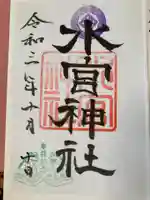 水宮神社
令和三年十月